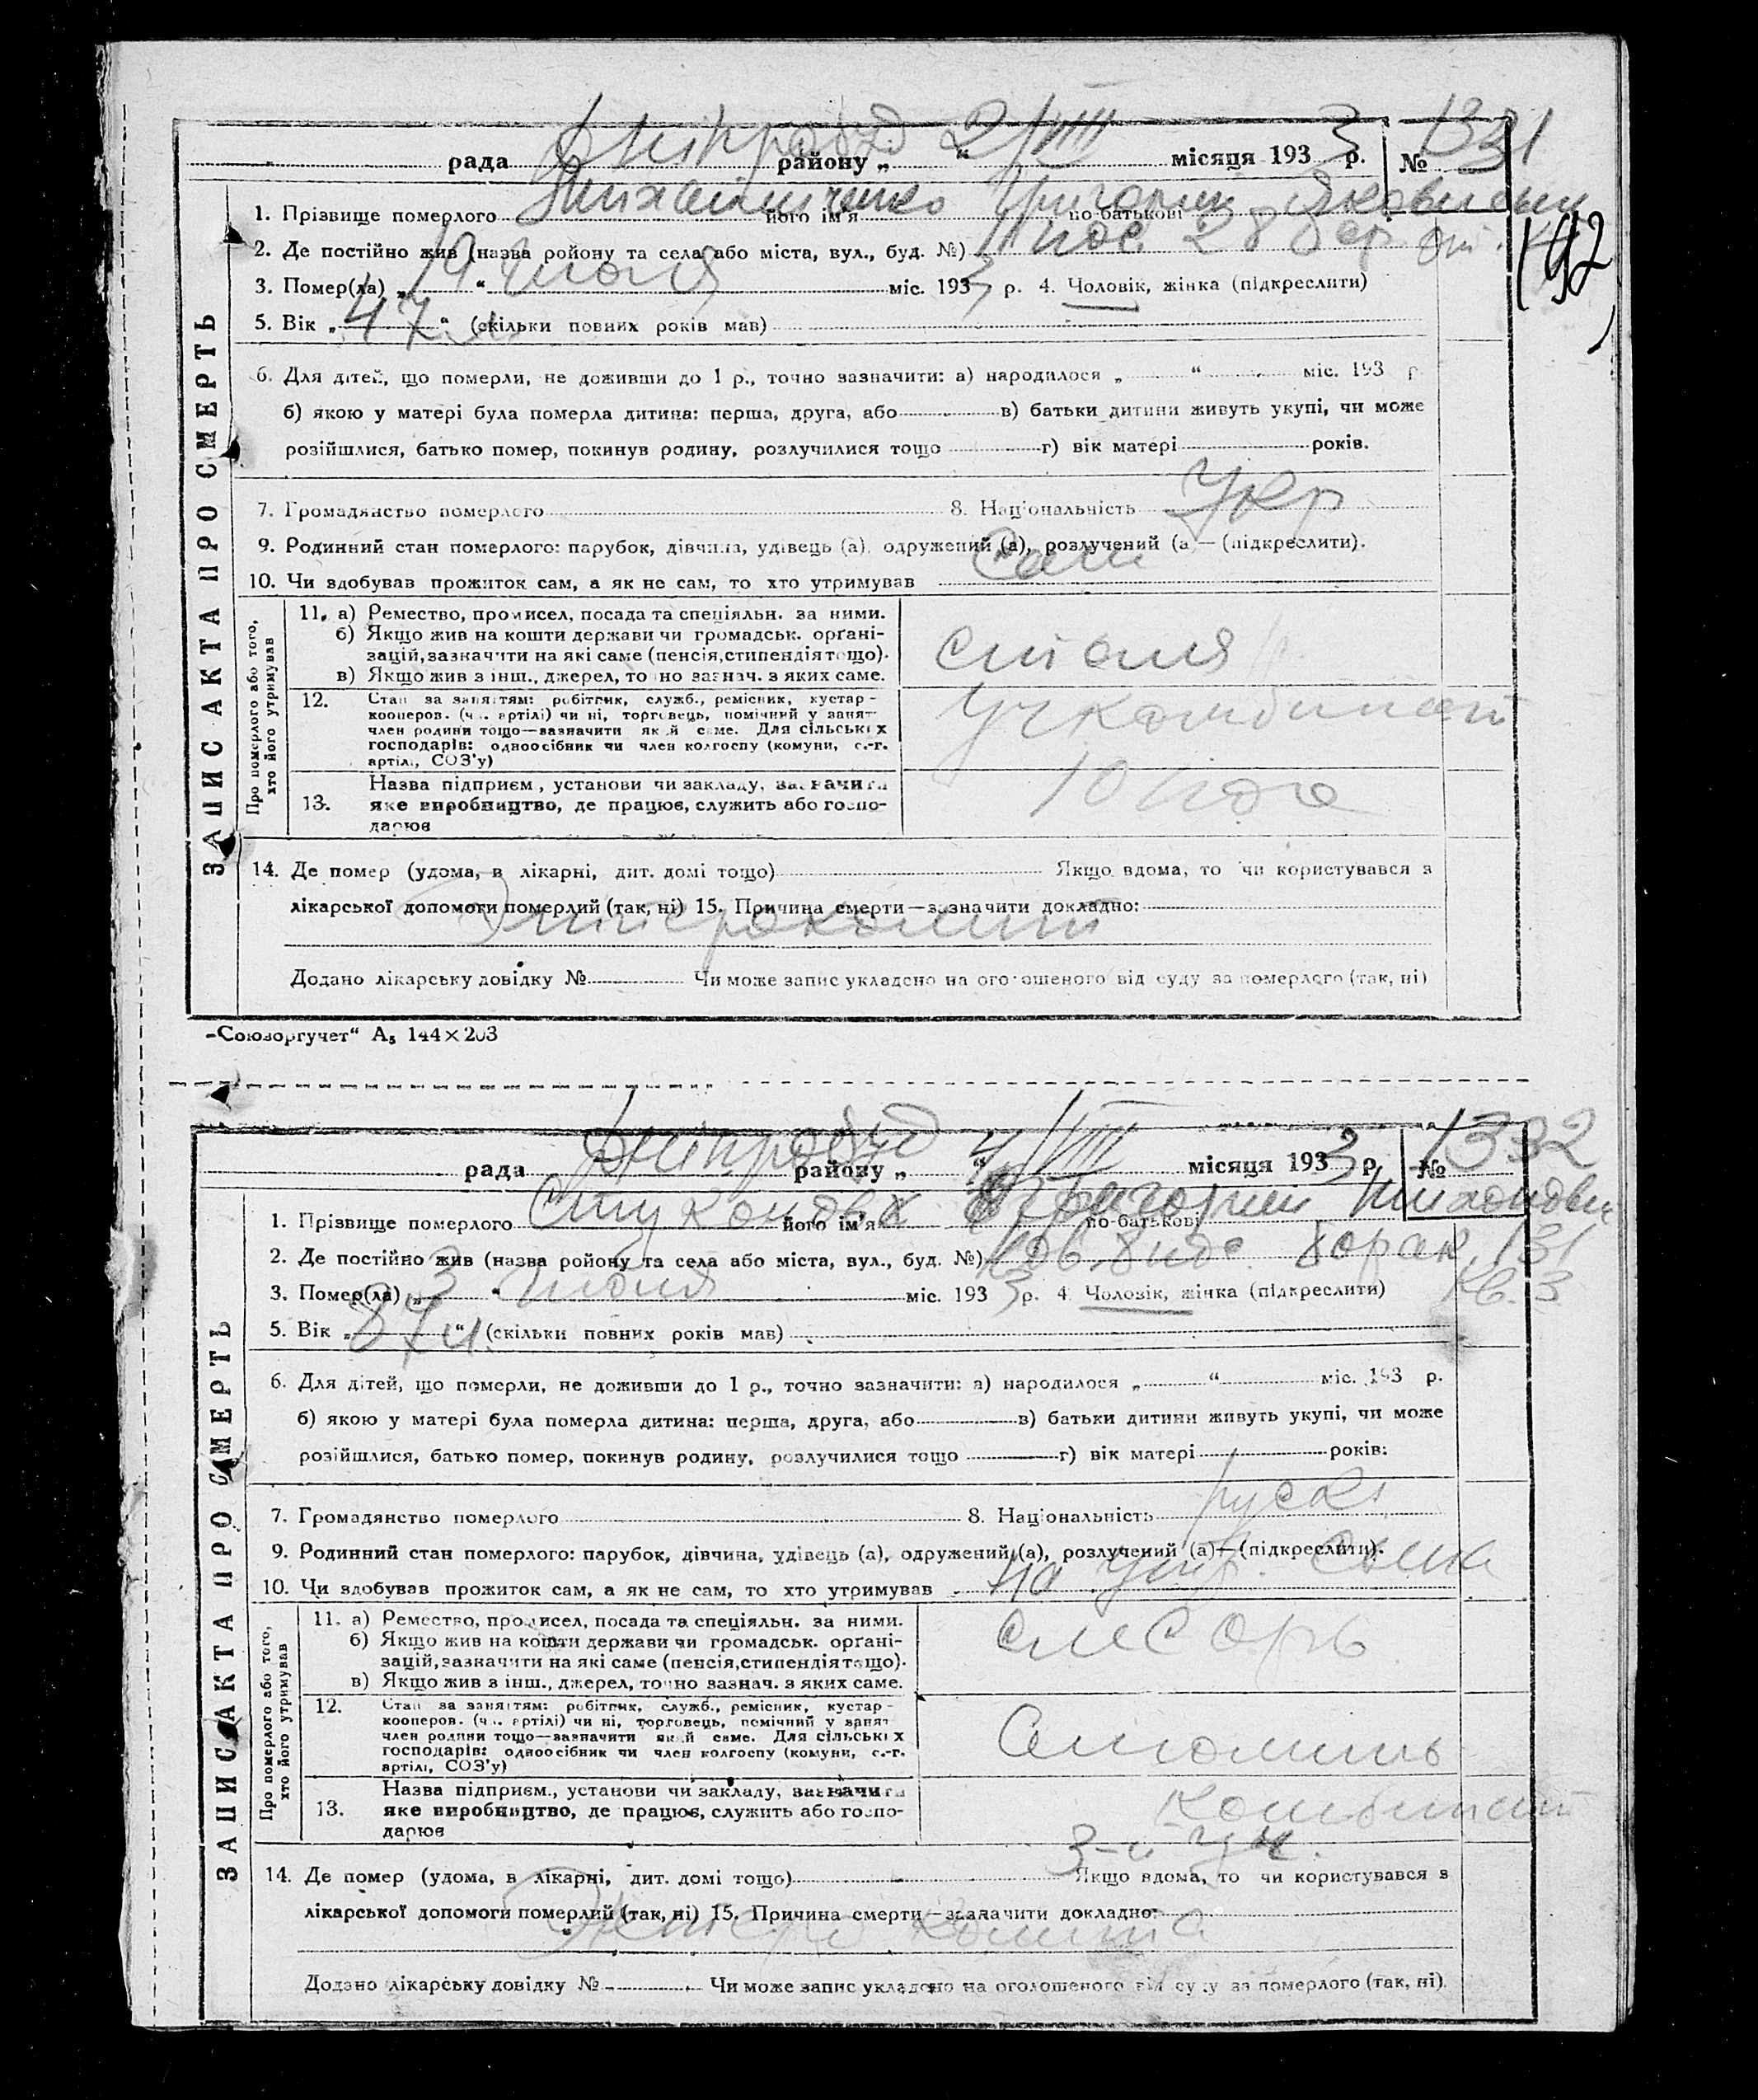 Дніпробуд 2/VIII 1331
рада району „ “ місяця 193 3 р. №
1. Прізвище померлого його ім’я Григорий по батькові Яковлевич
2. Де постійно жив (назва ройону та села або міста, вул., буд. №) 11 пос. 28 бар.
192
3. Помер(ла) „ “ июля міс. 193 3 р. 4. Чоловік, жінка (підкреслити)
5. Вік „ 47 “ (скільки повних років мав)
6. Для дітей, що померли, не доживши до 1 р., точно зазначити: а) народилося „ “ міс. 193 р.
б) якою у матері була померла дитина: перша, друга, або в) батьки дитини живуть укупі, чи може
розійшлися, батько помер, покинув родину, розлучилися тощо г) вік матері років.
7. Громадянство померлого 8. Національність Укр
9. Родинний стан померлого: парубок, дівчина, удівець (а), одружений (а), розлучений (а) — (підкреслити).
10. Чи здобував прожиток сам, а як не сам, то хто утримував Сам
ЗАПИС АКТА ПРО СМЕРТЬ
Про померлого або того,
хто його утримував
11. а) Ремество, промисел, посада та спеціяльн. за ними.
б) Якщо жив на кошти держави чи громадськ. орґані-
зацій, зазначити на які саме (пенсія, стипендія тощо).
в) Якщо жив з інш., джерел, точно зазнач. з яких саме.
столяр
12. Стан за заняттям: робітник, служб., ремісник, кустар -
кооперов. (чл. артілі) чи ні, торговець, помічний у занят-
член родини тощо—зазначити який саме. Для сільських
господарів: одноосібник чи член колгоспу (комуни, с.-г.
артілі, СОЗ’у)
Учкомбинат
13. Назва підприєм., установи чи закладу, зазначити
яке виробництво, де працює, служить або госпо-
дарює
10 пос
14. Де помер (удома, в лікарні, дит. домі тощо) Якщо вдома, то чи користувався з
лікарської допомоги померлий (так, ні) 15. Причина смерти—зазначити докладно:
Энтероколит
Додано лікарську довідку № Чи може запис укладено на оголошеного від суду за померлого (так, ні)
„Союзоргучет“ А₅ 144×203
Дніпробуд 4/VIII 1332
рада району „ “ місяця 193 3 р. №
1. Прізвище померлого його ім’я Григорий по батькові
2. Де постійно жив (назва ройону та села або міста, вул., буд. №) 8 пос. барак 131
кв. 3
3. Помер(ла) „ 3 “ міс. 193 3 р. 4 Чоловік, жінка (підкреслити)
5. Вік „ 87 л. “ (скільки повних років мав)
6. Для дітей, що померли, не доживши до 1 р., точно зазначити: а) народилося „ “ міс. 193 р.
б) якою у матері була померла дитина: перша, друга, або в) батьки дитини живуть укупі, чи може
розійшлися, батько помер, покинув родину, розлучилися тощо г) вік матері років:
7. Громадянство померлого 8. Національність
9. Родинний стан померлого: парубок, дівчина, удівець (а), одружений (а), розлучений (а) — (підкреслити).
10. Чи здобував прожиток сам, а як не сам, то хто утримував На утр. сына
ЗАПИС АКТА ПРО СМЕРТЬ
Про померлого або того,
хто його утримував
11. а) Ремество, промисел, посада та спеціяльн. за ними.
б) Якщо жив на кошти держави чи громадськ. орґані-
зацій, зазначити на які саме (пенсія, стипендія тощо).
в) Якщо жив з інш., джерел, точно зазнач. з яких саме.
слесарь
12. Стан за заняттям: робітник, служб., ремісник, кустар -
кооперов. (чл. артілі) чи ні, торговець, помічний у занят
член родини тощо—зазначити який саме. Для сільських
господарів: одноосібник чи член колгоспу (комуни, с.-г.
артілі, СОЗ’у)
13. Назва підприєм., установи чи закладу, зазначити
яке виробництво, де працює, служить або госпо-
дарює
Комбинат
3-й уч.
14. Де помер (удома, в лікарні, дит. домі тощо) Якщо вдома, то чи користувався з
лікарської допомоги померлий (так, ні) 15. Причина смерти — зазначити докладно:
Додано лікарську довідку № Чи може запис укладено на оголошеного від суду за померлого (так, ні)